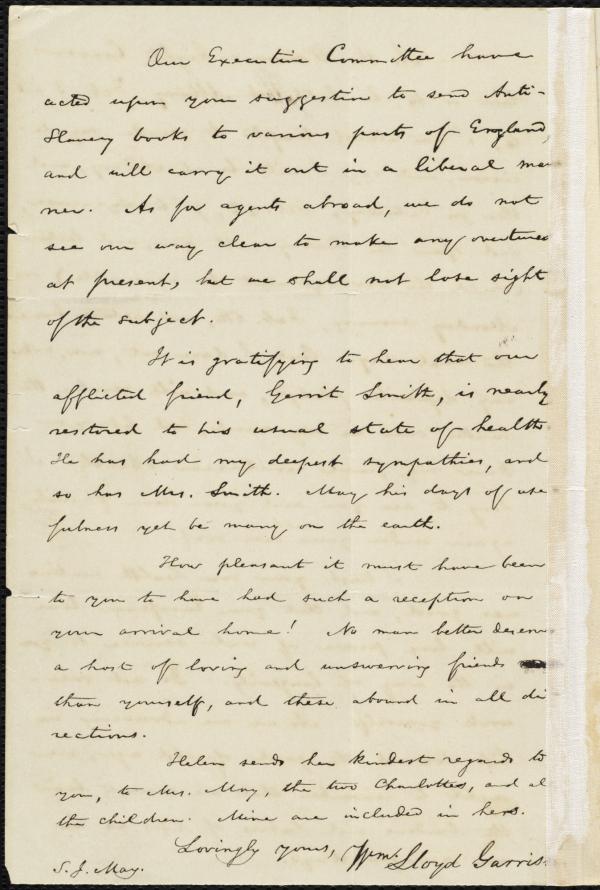 Our Executive Committee have
acted upon your suggestion to send Anti-
Slavery books to various parts of England,
and will carry it out in a liberal man
ner. As for agents abroad, we do not
see our way clear to make any overtures
at present, but we shall not lose sight
of the subject.
It is gratifying to hear that our
afflicted friend, Gerrit Smith, is nearly
restored to his usual state of health
He has had my deepest sympathies, and
so has Mrs. Smith. May his days of use
fulness yet be many on the earth.
How pleasant it must have been
to you to have had such a reception on
your arrival home! No man better deserv
a host of loving and unswerving friends
than yourself, and these abound in all di
rections.
Helen sends her kindest regards to
you, to Mrs. May, the two Charlottes, and al
the children. Mine are included in hers.
Lovingly yours, Wm. Lloyd Garris
S. J. May.